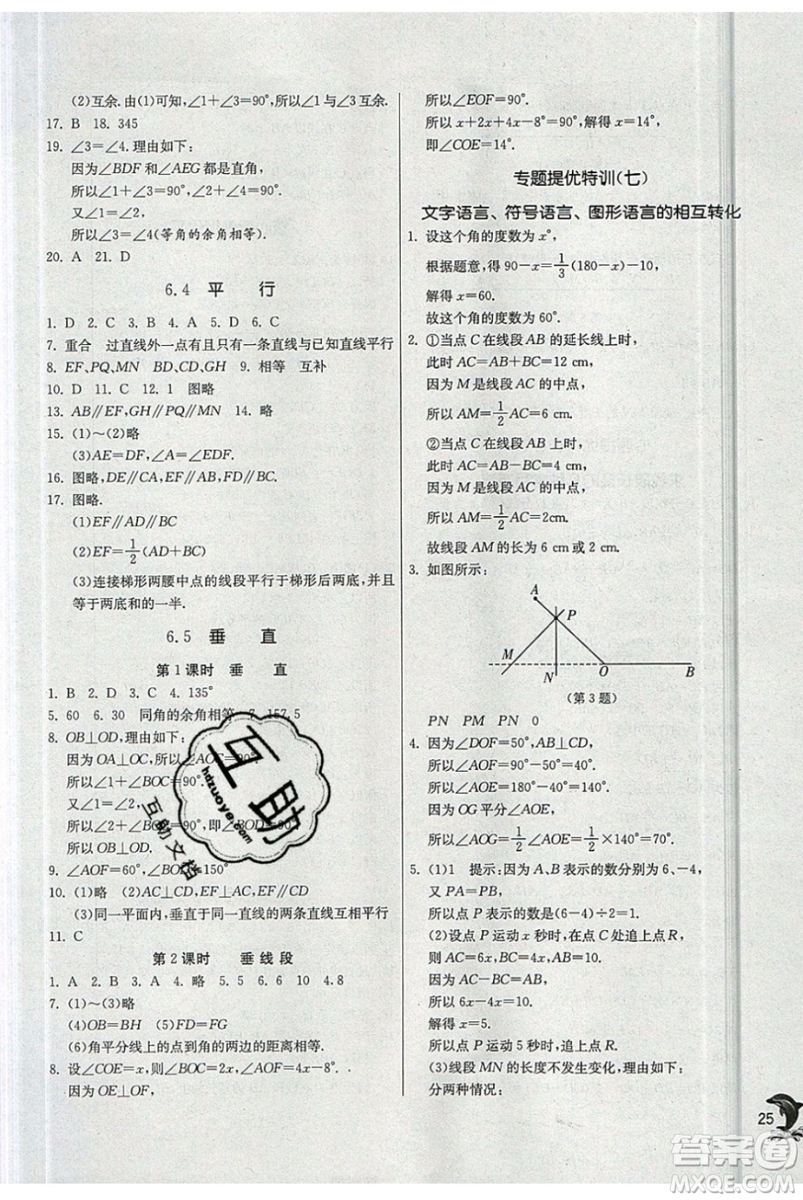 (2)互余.由(1)可知,∠1+∠3=90°,所以∠1与∠3互余.
17. B 18. 345
19. ∠3=∠4.理由如下:
因为∠BDF和∠AEG都是直角,
所以∠1+∠3=90°,∠2+∠4=90°.
又因为∠1=∠2,
所以∠3=∠4(等角的余角相等).
20. A 21. D
6.4 平 行
1. D 2. C 3. B 4. A 5. D 6. C
7. 重合 过直线外一点有且只有一条直线与已知直线平行
8. EF,PQ,MN BD,CD,GH 9. 相等 互补
10. D 11. C 12. 1 图略
13. AB∥EF,GH∥PQ∥MN 14. 略
15. (1)~(2)略
(3)AE=DF,∠A=∠EDF.
16. 图略,DE∥CA,EF∥AB,DF∥CB.
17. 图略.
(1)EF∥AD∥BC
(2)EF=1/2(AD+BC)
(3)连接梯形两腰中点的线段平行于梯形后两底,并且
等于两底和的一半.
6.5 垂 直
第1课时 垂 直
1. B 2. D 3. C 4. 135°
5. 60 6. 30 同角的余角相等 7. 157.5
8. OB⊥OD,理由如下:
因为OA⊥OC,所以∠AOC=90°.
所以∠1+∠BOC=90°.
又∠1=∠2,
所以∠2+∠BOC=90°,即∠BOD=90°.
所以OB⊥OD.
9. ∠AOF=60°,∠BOE=150°
10. (1)略 (2)AC⊥CD,EF⊥CD,AC∥EF
(3)同一平面内,垂直于同一直线的两条直线互相平行
11. C
第2课时 垂线段
1. A 2. B 3. A 4. 略 5. 5 6. 6 10 4.8
7. (1)~(3)略
(4)OB=BH (5)FD=FG
(6)角平分线上的点到角的两边的距离相等.
8. 设∠COE=x,则∠BOC=2x,∠AOF=4x-8°.
因为OE⊥OF,
所以∠EOF=90°.
所以x+2x+4x-8°=90°,解得x=14°,
即∠COE=14°.
专题提优特训(七)
文字语言、符号语言、图形语言的相互转化
1. 设这个角的度数为x°,
根据题意,得90-x=1/3(180-x)-10,
解得x=60.
故这个角的度数为60°.
2. ①当点C在线段AB的延长线上时,
此时AC=AB+BC=12 cm,
因为M是线段AC的中点,
所以AM=1/2AC=6 cm.
②当点C在线段AB上时,
此时AC=AB-BC=4 cm,
因为M是线段AC的中点,
所以AM=1/2AC=2cm.
故线段AM的长为6 cm或2 cm.
3. 如图所示:
A
P
M
N
O
B
(第3题)
PN PM PN 0
4. 因为∠DOF=50°,AB⊥CD,
所以∠BOF=90°-50°=40°,
所以∠AOE=180°-40°=140°.
因为OG平分∠AOE,
所以∠AOG=1/2∠AOE=1/2×140°=70°.
5. (1)1 提示:因为A、B表示的数分别为6、-4,
又PA=PB,
所以P表示的数是(6-4)÷2=1.
(2)设点P运动x秒时,在点C处追上点R,
则AC=6x,BC=4x,AB=10.
因为AC-BC=AB,
所以6x-4x=10,
解得x=5.
所以点P运动5秒时,追上点R.
(3)线段MN的长度不发生变化,理由如下:
分两种情况:
互助
hdzuoye.com
互助文档
25
答案圈
MXQE.COM